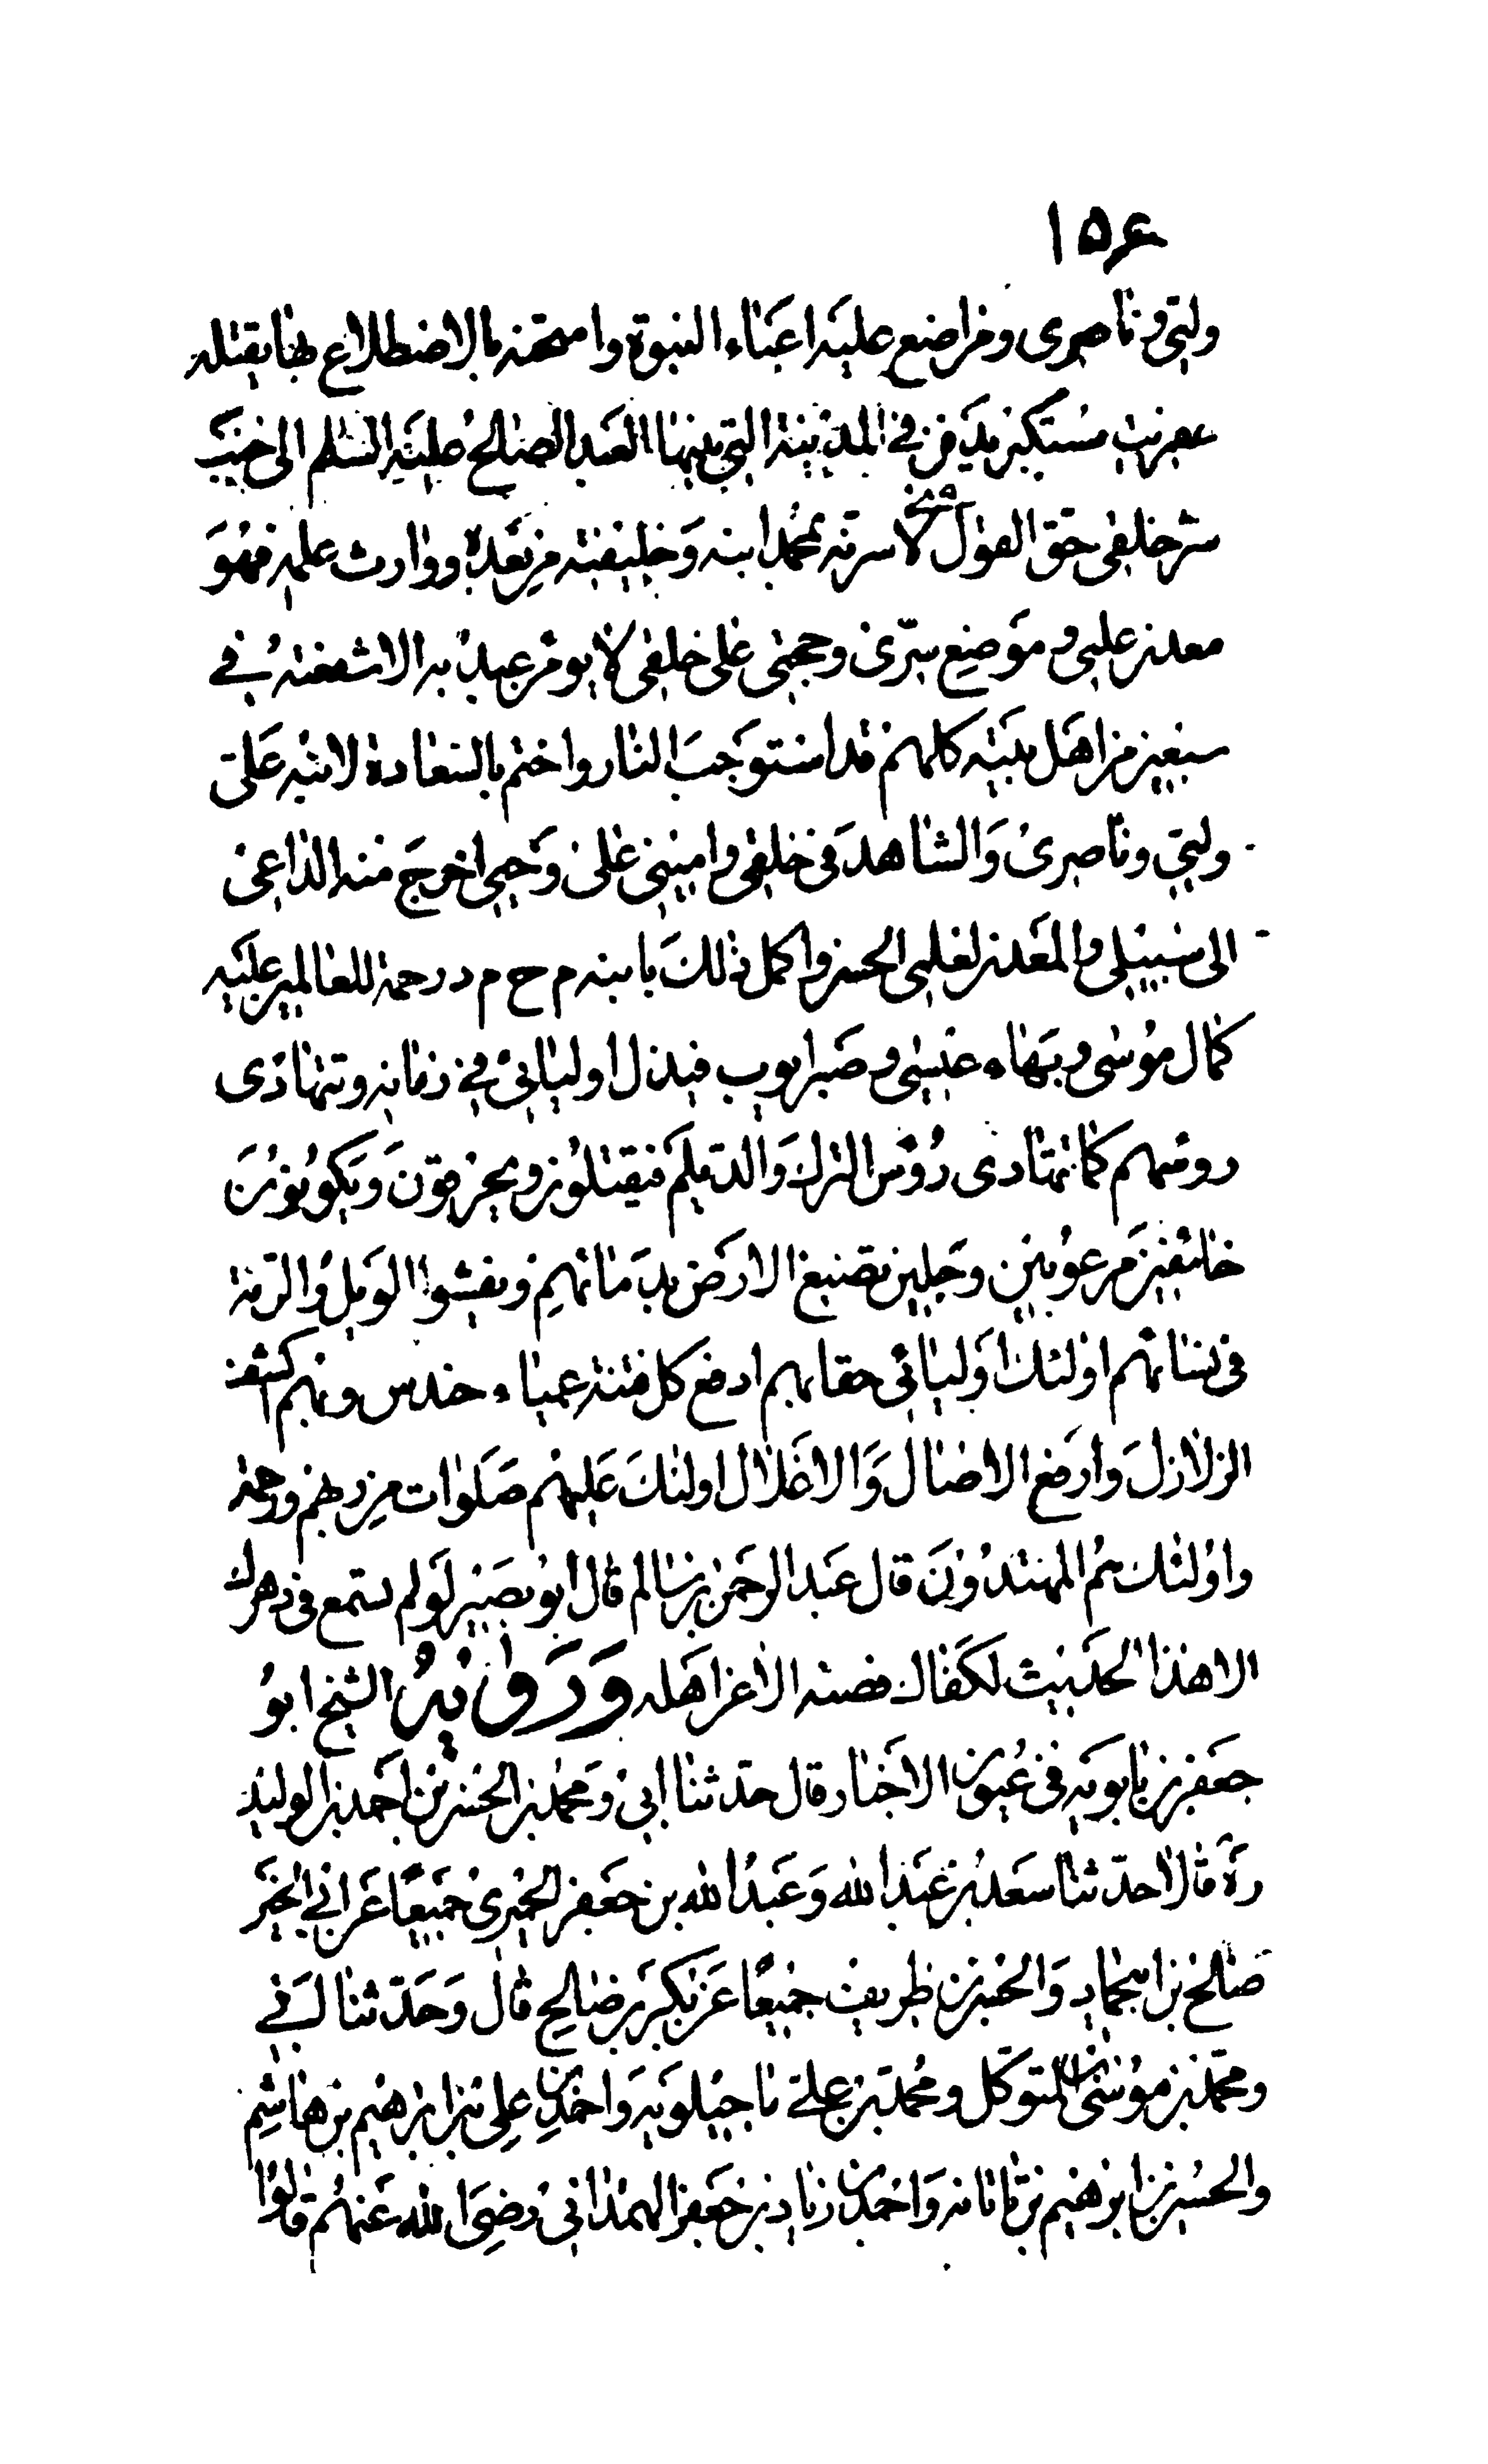 ۱۵۶
وليّي وناصري ومن اضع عليه اعباء النبوة وامتحنه بالاضطلاع بها يقتله
عفريت مستكبر يدفن في المدينة التي بناها العبد الصالح عليه السلم الى جنب
شر خلقي حق القول لاسرنه بمحمد ابنه وخليفته من بعده ووارث علمه فهو
معدن علمي وموضع سري وحجتي على خلقي لا يومن عبد به الا شفعته في
سبعين من اهل بيته كلهم قد استوجب النار واختم بالسعادة لابنه علي
وليي وناصري والشاهد في خلقي واميني على وحيي اخرج منه الداعي
الى سبيلي والمعدن لعلمي الحسن واكمل ذلك بابنه م ح م د رحمة للعالمين عليه
كمال موسى وبهاء عيسى وصبر ايوب فيذل اوليائي في زمانه وتتهادى
روسهم كما تتهادى رؤس الترك والديلم فيقتلون ويحرقون ويكونون
خائفين مرعوبين وجلين تصبغ الارض بدمائهم ويفشوا الويل والرنة
في نسائهم اولئك اوليائي حقا بهم ادفع كل فتنة عمياء حندس وبهم اكشف
الزلازل وادفع الاصال والاغلال اولئك عليهم صلوات من ربهم ورحمة
واولئك هم المهتدون قال عبد الرحمن بن سالم قال ابو بصير لو لم تسمع في دهرك
الا هذا الحديث لكفاك فصنه الا عن اهله ورواية الشيخ ابو
جعفر بن بابويه في عيون الاخبار قال حدثنا ابي ومحمد بن الحسن بن احمد بن الوليد
ره قالا حدثنا سعد بن عبد الله وعبد الله بن جعفر الحميري جميعا عن ابي الخير
صالح بن ابي حماد والحسن بن ظريف جميعا عن بكر بن صالح قال وحدثنا ابي
ومحمد بن موسى بن المتوكل ومحمد بن علي ماجيلويه واحمد بن علي بن ابرهيم بن هاشم
والحسين بن ابرهيم بن ناتانه واحمد بن زياد بن جعفر الهمداني رضي الله عنهم قالوا